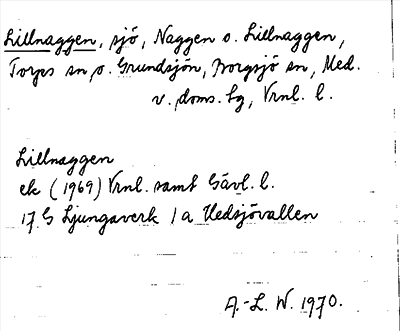 Lillnaggen, sjö, Naggen o. Lillnaggen,
Torps sn, o. Grundsjön, Borgsjö sn, Med.
v. doms. lg, Vrnl. l.
Lillnaggen
ek (1969) Vrnl. samt Gävl. l.
17 G Ljungaverk / a Hedsjövallen
A.-L. W. 1970.